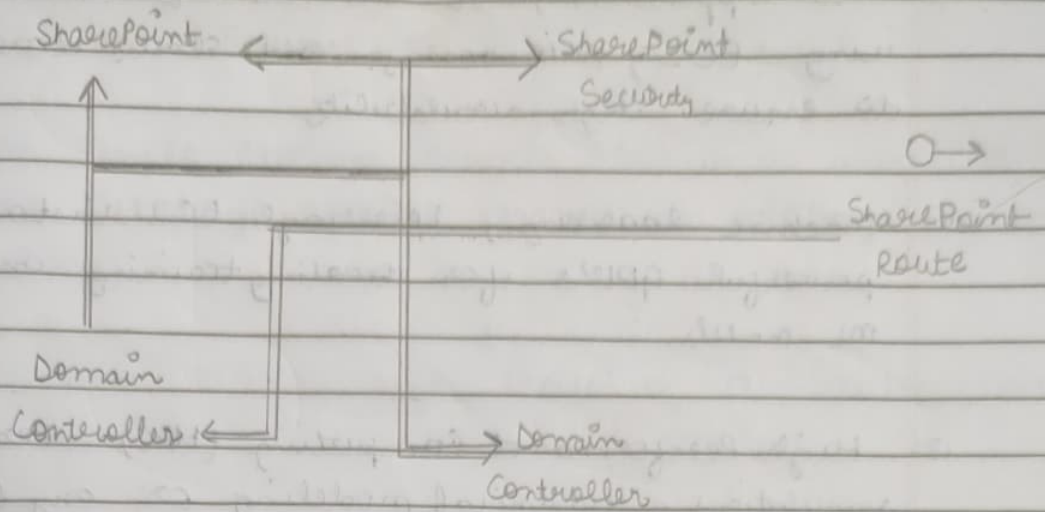 SharePoint
SharePoint
Security
SharePoint
Route
Domain
Controller
Domain
Controller